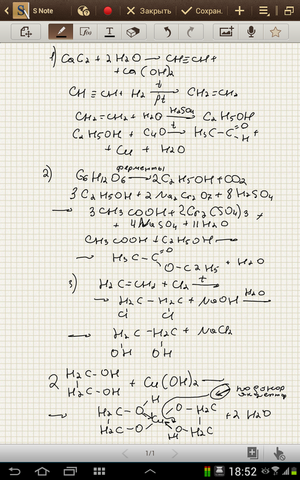 S Note
Закрыть
Сохран.
1) CaC₂ + 2H₂O → CH≡CH +
+ Ca(OH)₂
CH≡CH + H₂ t/Pt→ CH₂=CH₂
CH₂=CH₂ + H₂O H₂SO₄→ C₂H₅OH
C₂H₅OH + CuO t→ H₃C-C=O H +
+ Cu + H₂O
2) ферменты
C₆H₁₂O₆ → 2C₂H₅OH + CO₂
3C₂H₅OH + 2Na₂Cr₂O₇ + 8H₂SO₄
→ 3CH₃COOH + 2Cr₂(SO₄)₃ +
+ 4NaSO₄ + 11H₂O
CH₃COOH + C₂H₅OH →
→ H₃C-C=O O-C2H5 + H₂O
3) H₂C=CH₂ + Cl₂ t→
→ H₂C-H₂C + NaOH H₂O→
Cl Cl
→ H₂C-H₂C + NaCl₂
OH OH
2 H₂C-OH H₂C-OH + Cu(OH)₂ →
→ H₂C-O H H₂C-O Cu O-H₂C O-H₂C H + 2H₂O
1/1
18:52